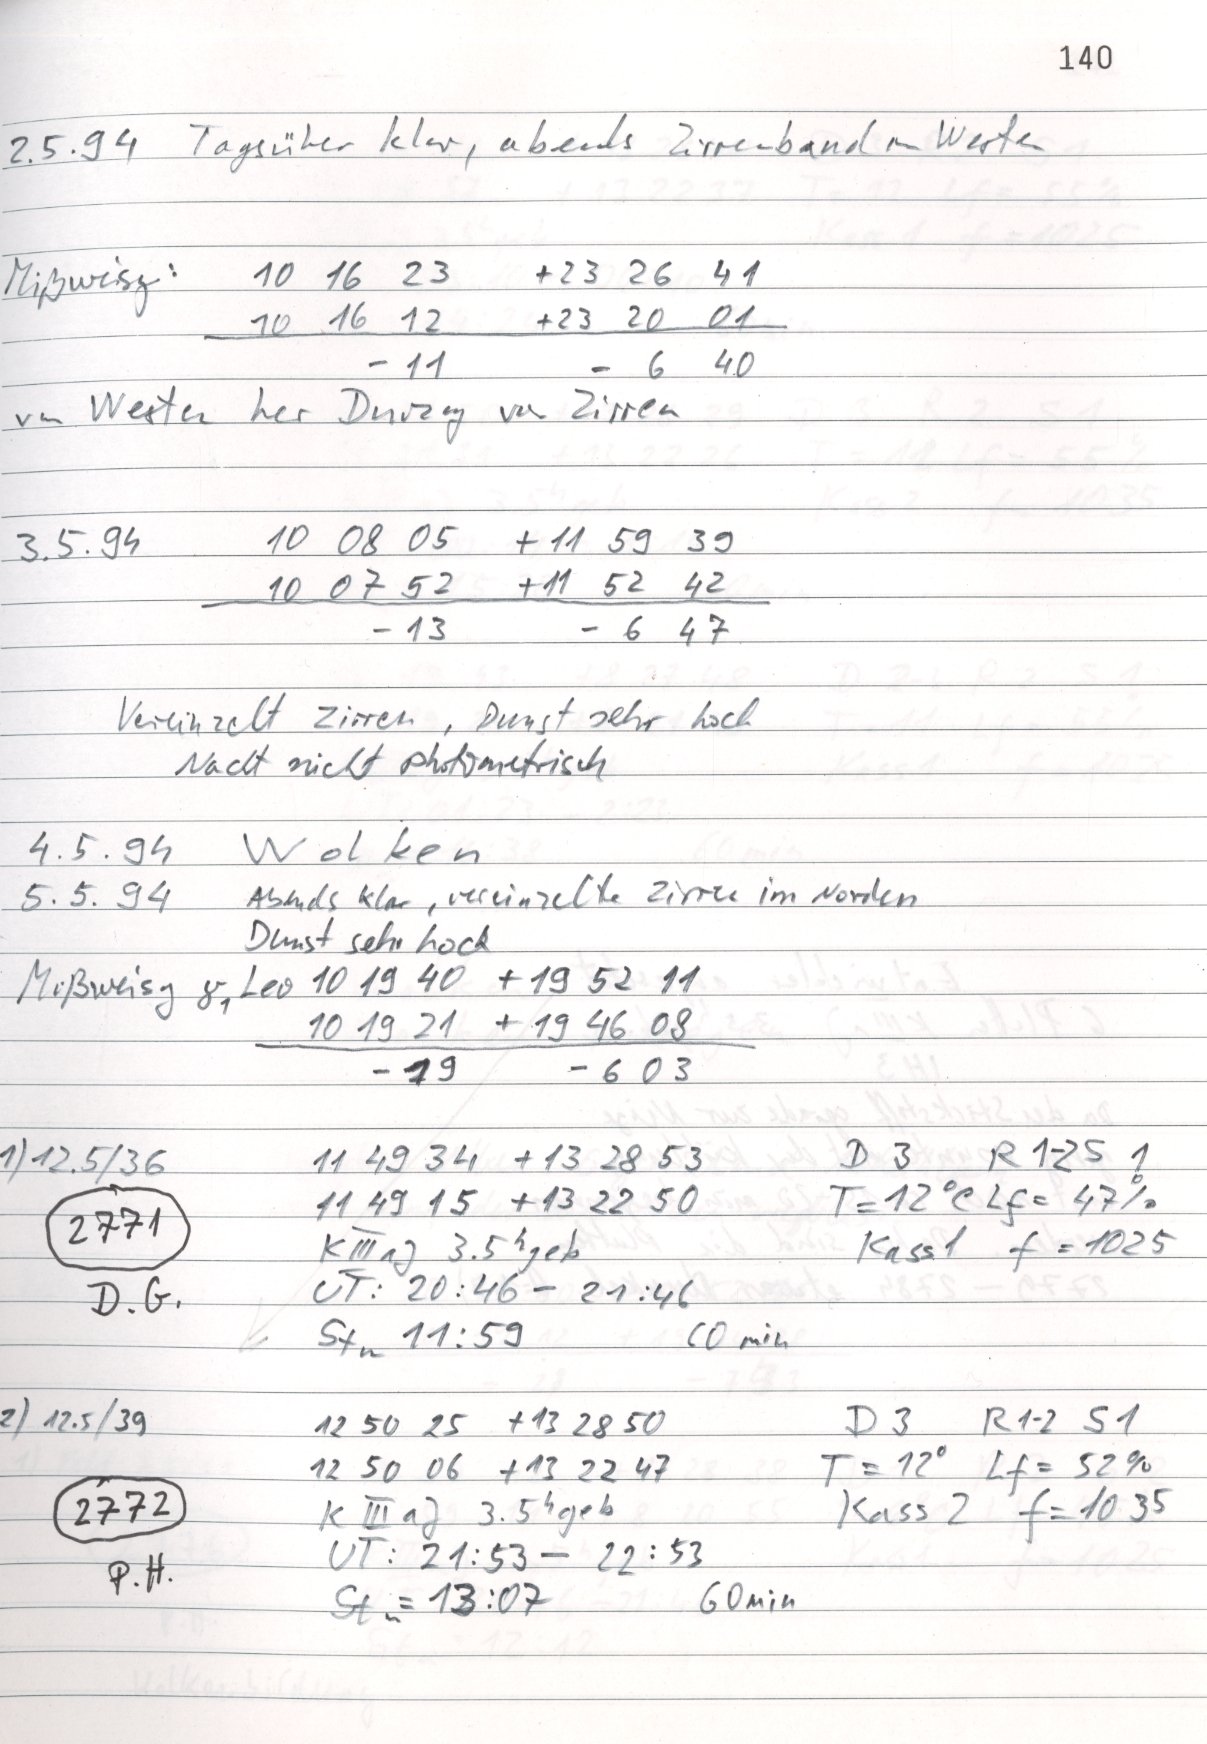 140
2.5.94 Tagsüber klar, abends Zirrenband im Westen
Mißweisg: 10 16 23 +23 26 41
10 16 12 +23 20 01
- 11 - 6 40
von Westen her Durzug von Zirren
3.5.94 10 08 05 +11 59 39
10 07 52 +11 52 42
- 13 - 6 47
Vereinzelt Zirren, Dunst sehr hoch
Nacht nicht photometrisch
4.5.94 Wolken
5.5.94 Abends klar, vereinzelte Zirren im Norden
Dunst sehr hoch
Mißweisg γ1 Leo 10 19 40 +19 52 11
10 19 21 +19 46 08
- 19 - 6 03
1) 12.5/36 11 49 34 +13 28 53 D 3 R 1-2 S 1
2771 11 49 15 +13 22 50 T=12°C Lf= 47%
K III aJ 3.5h geb Kass1 f=1025
D.G. UT: 20:46 - 21:46
Stn 11:59 60 min
2) 12.5/39 12 50 25 +13 28 50 D 3 R 1-2 S 1
12 50 06 +13 22 47 T=12° Lf= 52%
2772 K III aJ 3.5h geb Kass 2 f=1035
UT: 21:53 - 22:53
P.H. Stn = 13:07 60 min